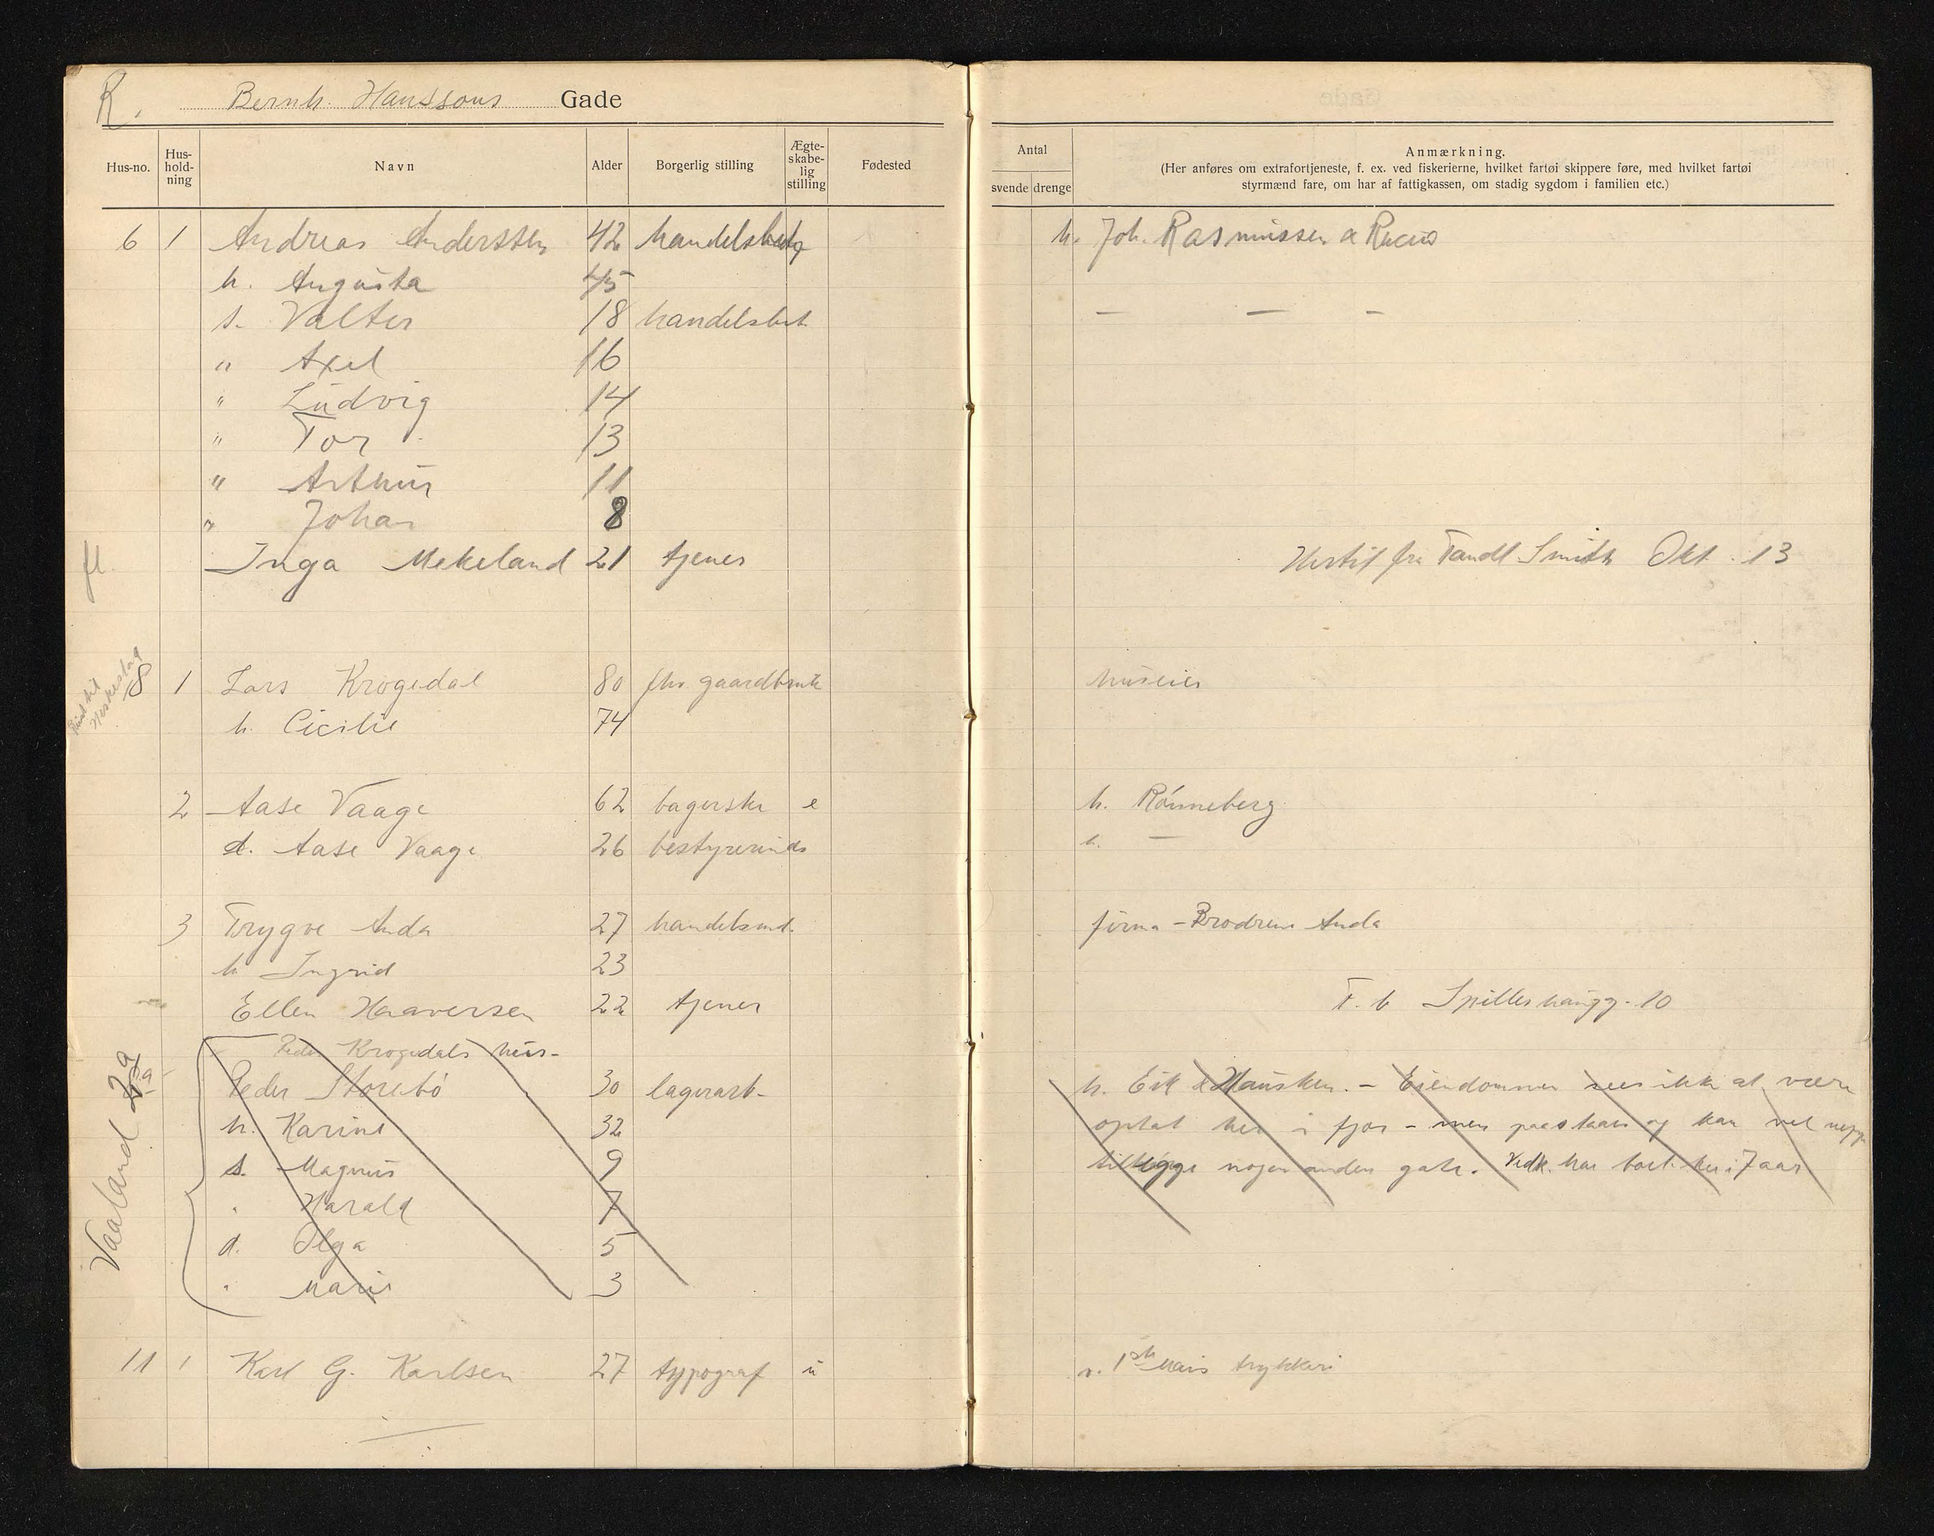 R. Bernh. Hanssons Gade
Hus-no. Hus-hold-ning Navn Alder Borgerlig stilling Ægte-skabe-lig stilling Fødested
Antal
svende drenge
Anmærkning.
(Her anføres om extrafortjeneste, f. ex. ved fiskerierne, hvilket fartøi skippere føre, med hvilket fartøi
styrmænd fare, om har af fattigkassen, om stadig sygdom i familien etc.)
6 1 Andreas Anderssen 42 handelsbetg h. Joh. Rasmussen & Racis
h. Augusta 45
s. Valter 18 handelsbet — — —
" Axel 16
" Ludvig 14
" Tor 13
" Arthur 11
" Johan 8
fl. Inga Mekeland 21 tjener Hertil fra Tandl Smith Okt. 13
8 1 Lars Krogedal 80 fhv. gaardbruk huseier
h. Cicilie 74
2 Aase Vaage 62 bagerske e h. Rönneberg
d. Aase Vaage 26 bestyrerinde h. —
3 Trygve Anda 27 handelsmd. firma - Brødrene Anda
h Ingrid 23
Ellen Haaversen 22 tjener F. b Spilleshaugg. 10
Peder Krogedals hus-
Vaaland
Peder Storebö 30 lagerarb- h. Eik & Hausken. - Eiendommen sees ikke at være
h. Karine 32 optat her i fjor - men paastaaes og kan vel neppe
s. Magnus 9 tilligge nogen anden gate. Vedk. har boet her i 7 aar
" Harald 7
d. Olga 5
" Marie 3
11 1 Karl G. Karlsen 27 typograf u v. 1ste Mais trykkeri